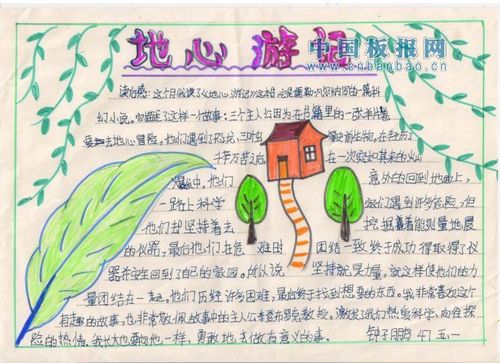 地心游记
中国板报网
www.cnbanbao.cn
读后感：这个月我读了《地心游记》这本
幻小说。它描述了这样一个故事：三个主人公因为在 里的一张羊片
去地心冒险。他们遇到了恐龙、三叶虫 等史前生物。在经历了
千辛万苦之后 在一次突如其来的火山
爆发中，他们 意外的回到地面上，
一是在上科学 我们遇到许多危险，但
他们却坚持着去 挖掘着能测量地震
的仪器，最后他们在危难时 团结一致终于成功得取得了仪
器并安回到了自己的家园。所以说 坚持就是力量，就这样使他们的力
量团结在一起。他们历经许多困难，最后终于找到想要的东西。我非常喜欢这个
有趣的故事，也非常敬佩故事中的主人公 教授。激发了我们热爱科学，向往探
险的热情。我长大也要和他一样，勇敢地去做有意义的事。